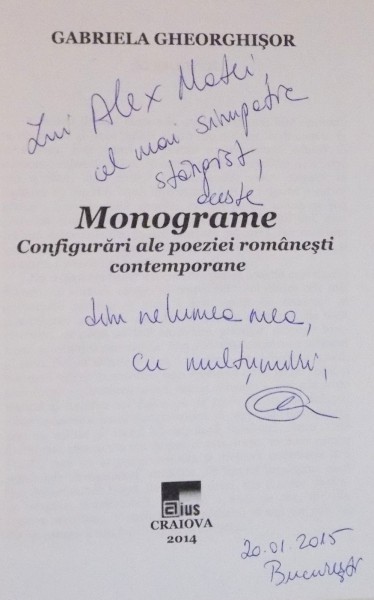 GABRIELA GHEORGHIȘOR
Lui Alex Matei,
cel mai simpatic
stângist,
aceste
Monograme
Configurări ale poeziei românești
contemporane
din nelumea mea,
cu mulțumiri,
Aius
CRAIOVA
2014
20.01.2015
București